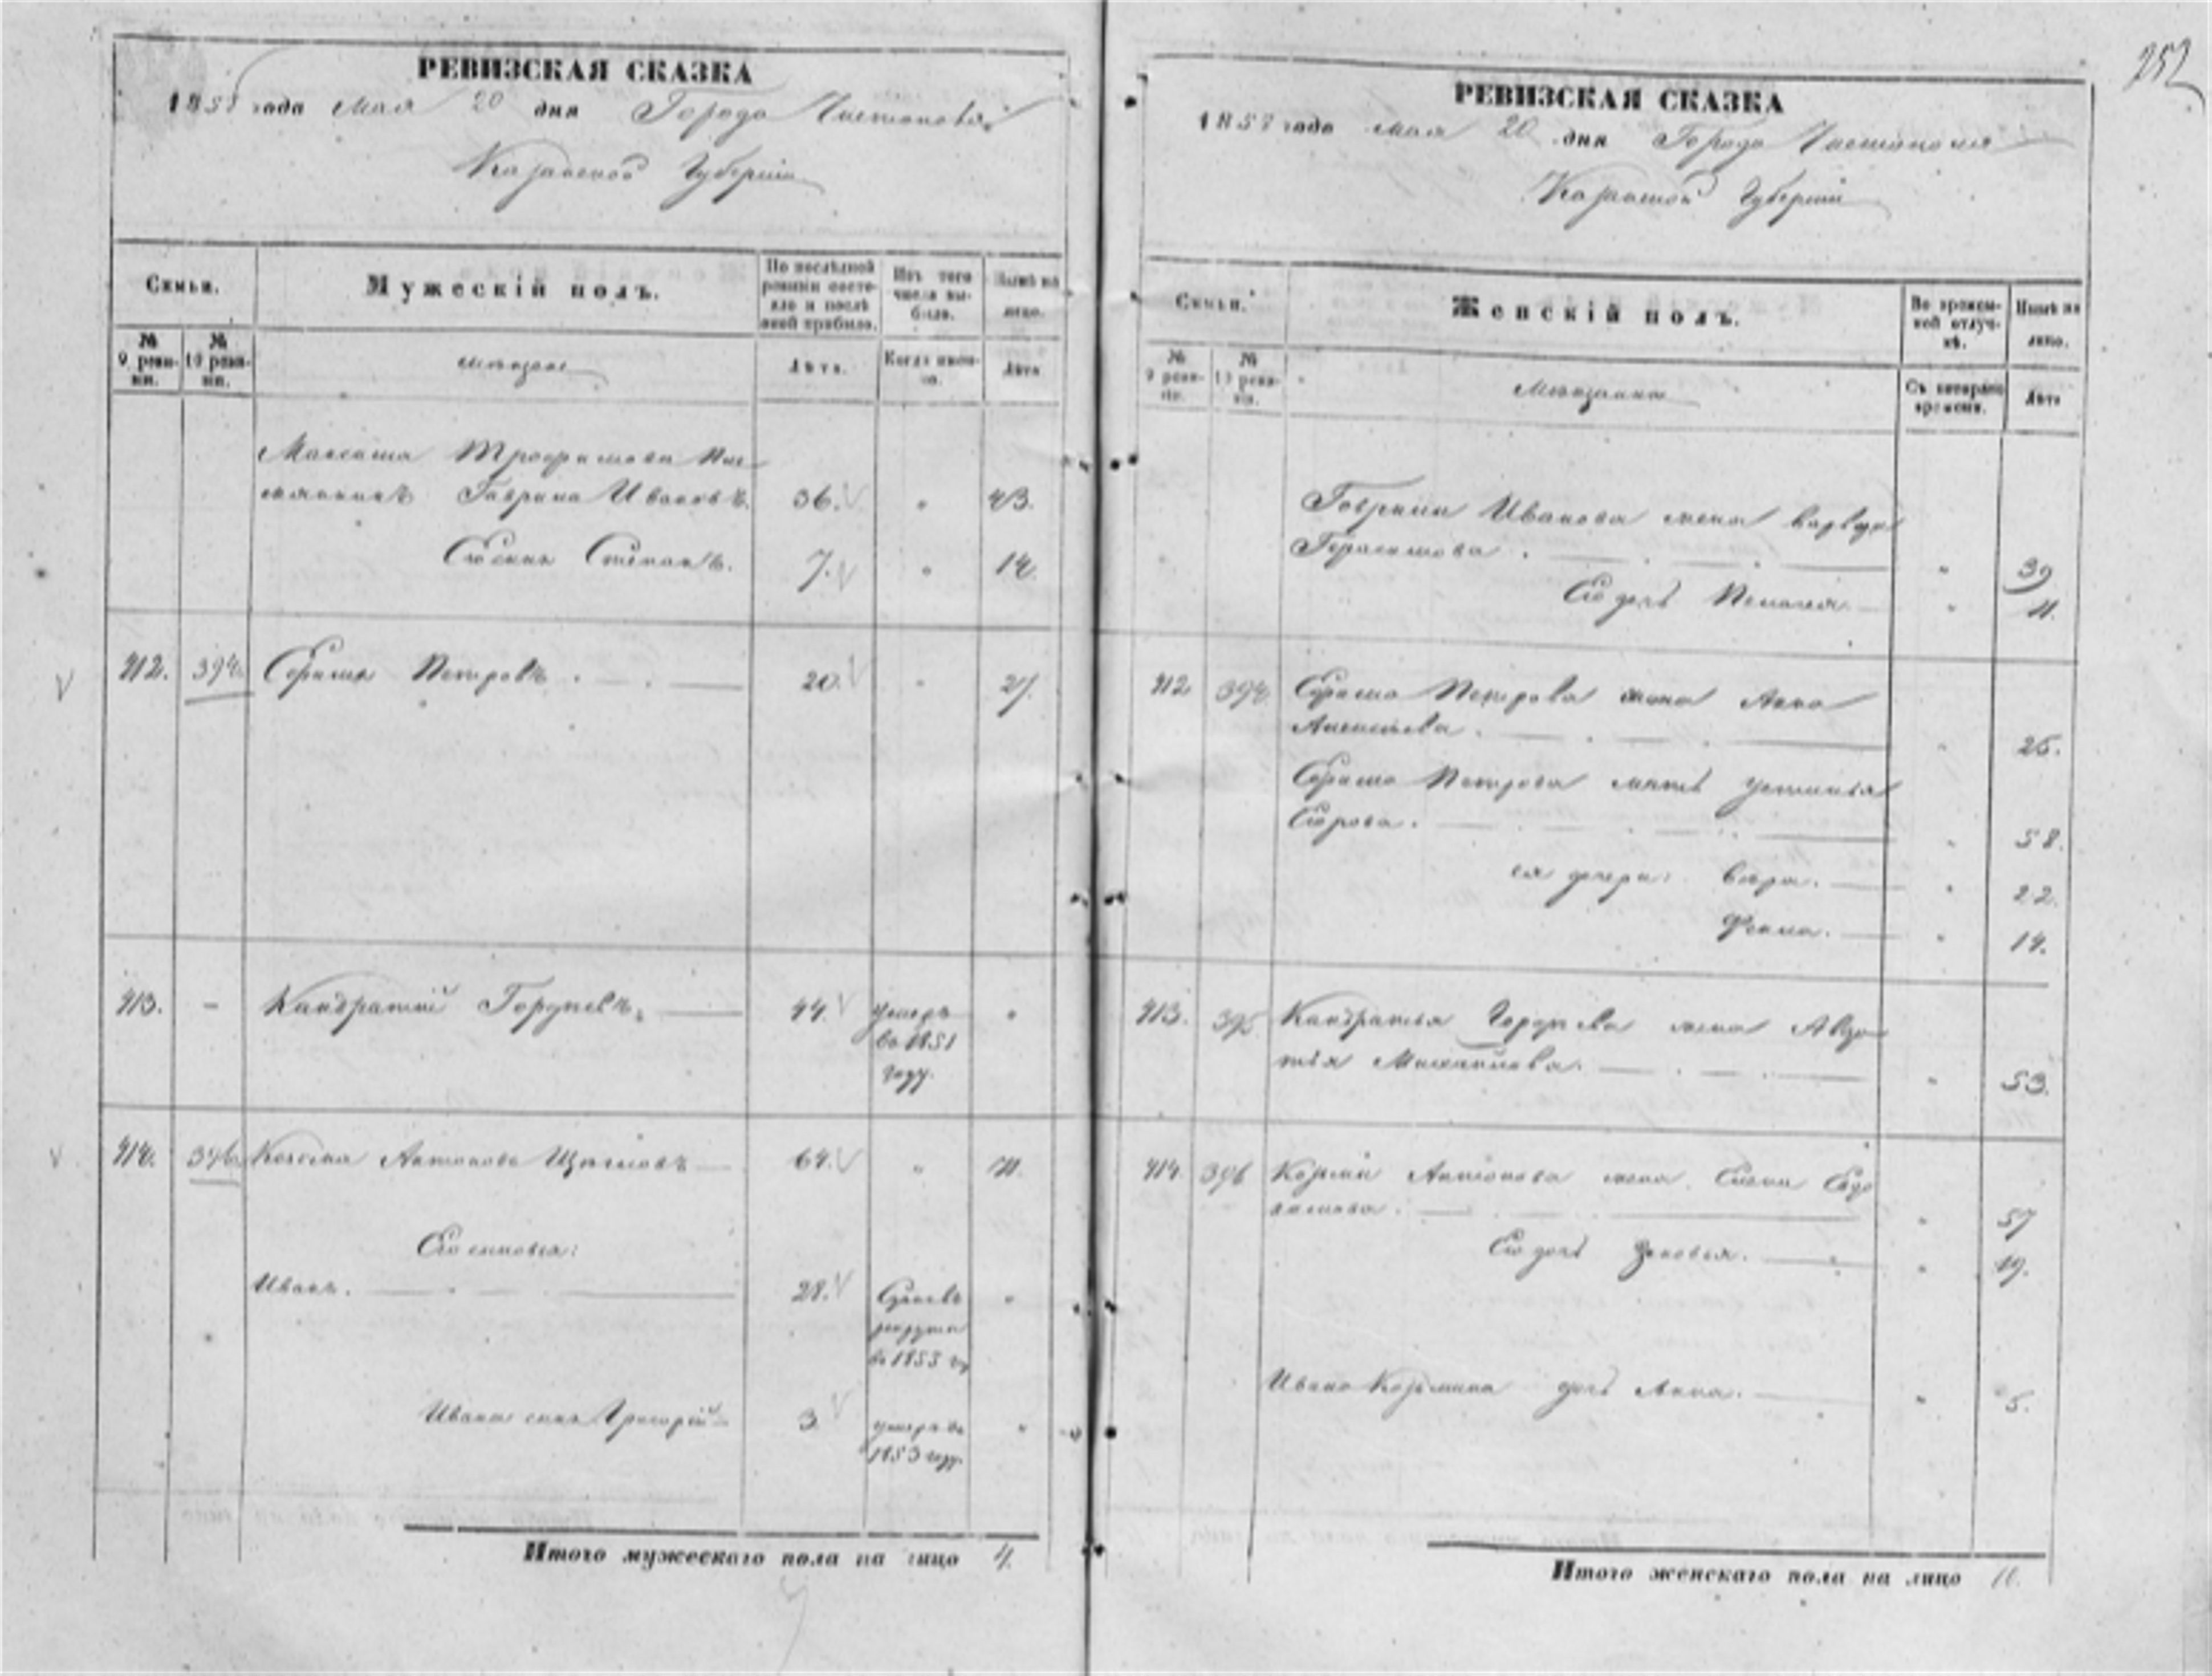 252
РЕВИЗСКАЯ СКАЗКА
1858 года Мая 20 дня Города Чистополя
Казанской Губернии
Семьи.
Мужескій полъ.
По послѣдней ревизіи состояло и послѣ оной прибыло.
Изъ того числа выбыло.
Нынѣ на лицо.
№ 9 ревизіи.
№ 10 ревизіи.
Мѣщане
Лѣта.
Когда именно.
Лѣта
Максима Трофимова пле-
мянникъ Гаврила Ивановъ. 36. " 43.
Его сынъ Степанъ. 7. " 14.
412. 394. Ефимъ Петровъ. 20. " 27.
413. - Кандратій Гордѣевъ. 44. умеръ "
въ 1851
году.
414. 396. Козьма Антоновъ 64. " 71.
Его сыновья:
Иванъ. 28. "
рекруты
въ 1853 г
Ивана сынъ Григорій 3. умеръ въ "
1853 году.
Итого мужескаго пола на лицо 4.
РЕВИЗСКАЯ СКАЗКА
1858 года Мая 20 дня Города Чистополя
Казанской Губерніи
Семьи.
Женскій полъ.
Во временной отлучкѣ.
Нынѣ на лицо.
№ 9 ревизіи.
№ 10 ревизіи.
Мѣщанки
Съ котораго времени.
Лѣта
Гаврилы Иванова жена Варвара
Герасимова. " 39
Его дочь Пелагея " 11.
412 394. Ефима Петрова жена Анна
Алексѣева. " 25.
Ефима Петрова мать Устинья
Егорова. " 58.
ея дочери: Вѣра. " 22.
Фекла. " 14.
413. 395 Кандратья Гордѣева жена Авдо-
тья Михайлова. " 53.
414. 396 Козьмы Антонова жена Елена Евдо-
кимова. " 57
Его дочь Зиновья. " 19.
Ивана Козьмина дочь Анна. " 5.
Итого женскаго пола на лицо 10.